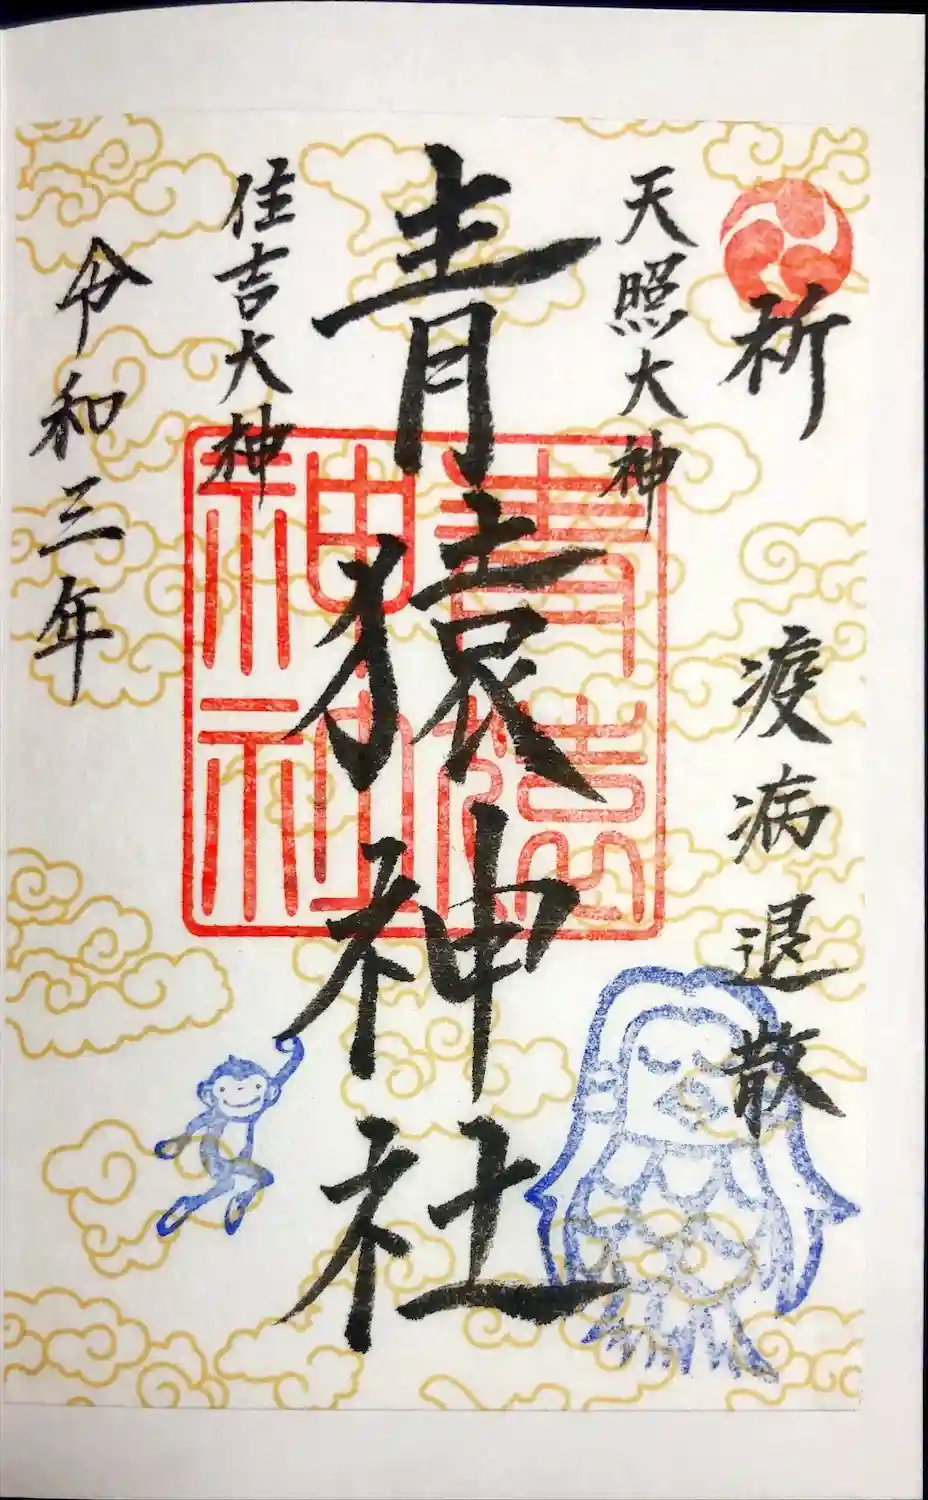 祈 疫病退散
天照大神
青猿神社
住吉大神
令和三年
青猿
神社